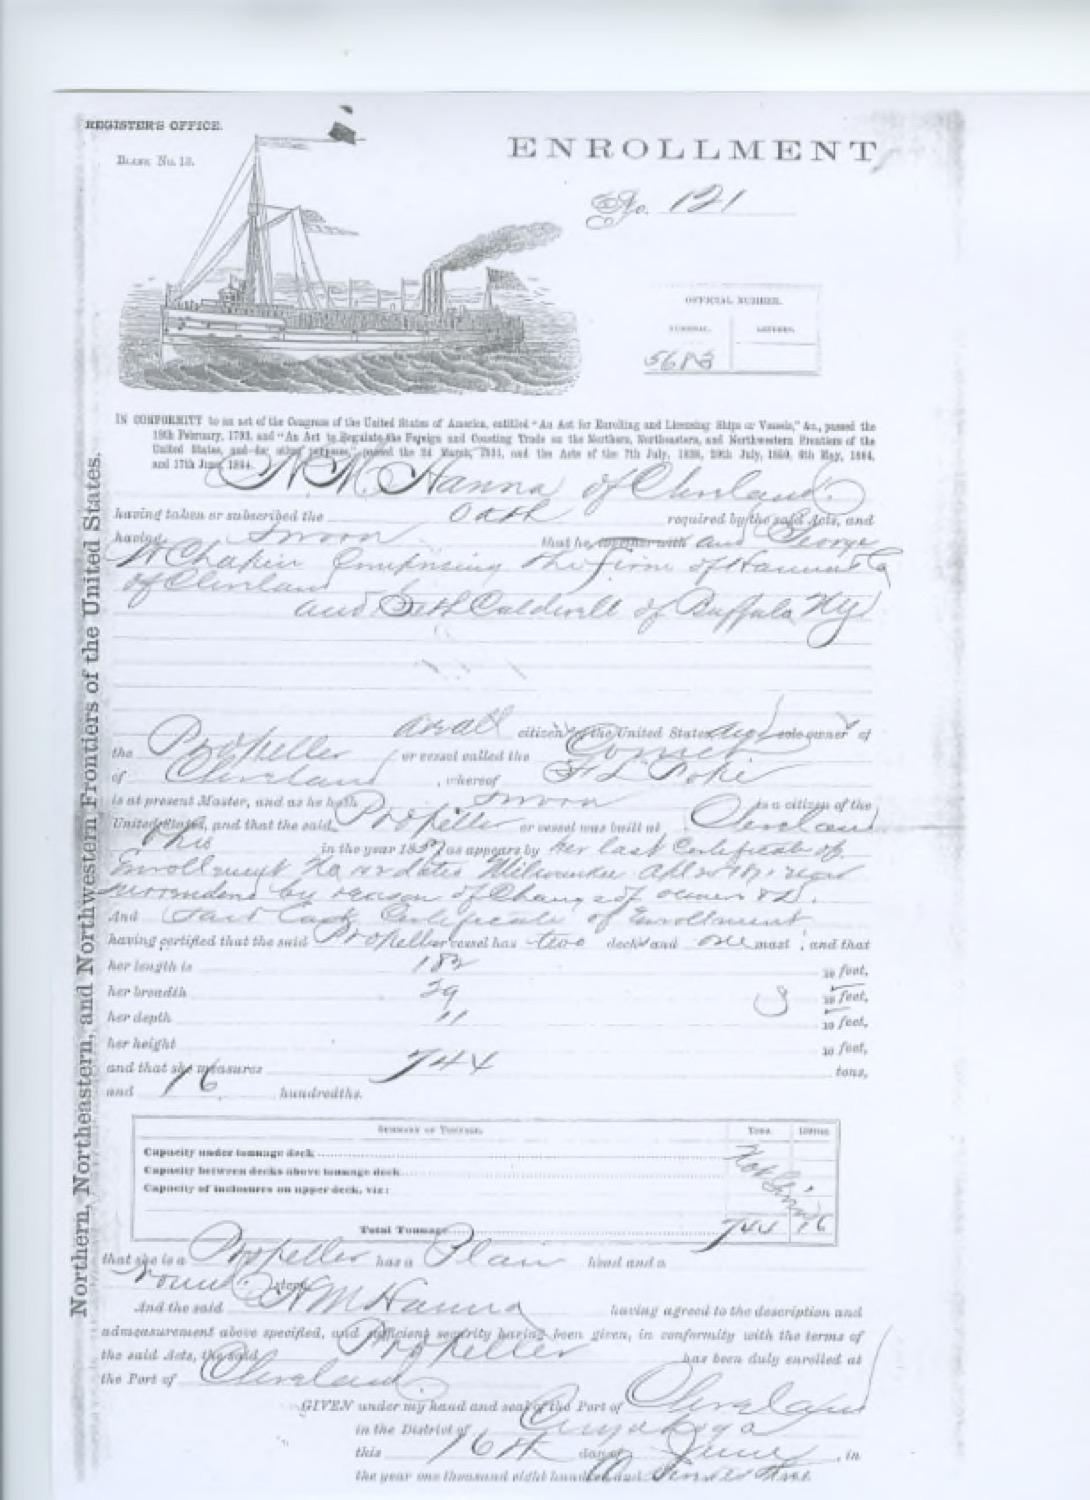 REGISTER'S OFFICE.
BLANK No. 13.
ENROLLMENT
No. 121
OFFICIAL NUMBER.
NUMERAL. LETTERS.
IN CONFORMITY to an act of the Congress of the United States of America, entitled "An Act for Enrolling and Licensing Ships or Vessels," &c., passed the
18th February, 1793, and "An Act to Regulate the Foreign and Coasting Trade on the Northern, Northeastern, and Northwestern Frontiers of the
United States, and for other purposes," passed the 2d March, 1831, and the Acts of the 7th July, 1838, 29th July, 1850, 6th May, 1864,
and 17th June, 1864.
M. Hanna of Cleveland
having taken or subscribed the Oath required by the said Acts, and
having Sworn that he together with and George
W Chapin Comprising the firm of Hanna & Co
of Cleveland
and Seth Caldwell of Buffalo NY
are all citizens of the United States sole owner of
the Propeller or vessel called the Comet
of Cleveland, whereof F L
is at present Master, and as he hath sworn is a citizen of the
United States, and that the said Propeller or vessel was built at Cleveland
Ohio in the year 1857 as appears by her last Certificate of
Enrollment No dated Milwaukee Apl
surrendered by reason of Change of owners &c.
And Said last Certificate of Enrollment
having certified that the said Propeller or vessel has two decks and one mast; and that
her length is 182 10 feet,
her breadth 29 10 feet,
her depth 11 10 feet,
her height 10 feet,
and that she measures 744 tons,
and 16 hundredths.
SUMMARY OF TONNAGE. TONS.
Capacity under tonnage deck
Capacity between decks above tonnage deck
Capacity of inclosures on upper deck, viz:
Total Tonnage 744 16
that she is a Propeller has a Plain head and a
round stern
And the said M Hanna having agreed to the description and
admeasurement above specified, and sufficient security having been given, in conformity with the terms of
the said Acts, the said Propeller has been duly enrolled at
the Port of Cleveland
GIVEN under my hand and seal of the Port of Cleveland
in the District of Cuyahoga
this 16th day of June, in
the year one thousand eight hundred and
Northern, Northeastern, and Northwestern Frontiers of the United States.